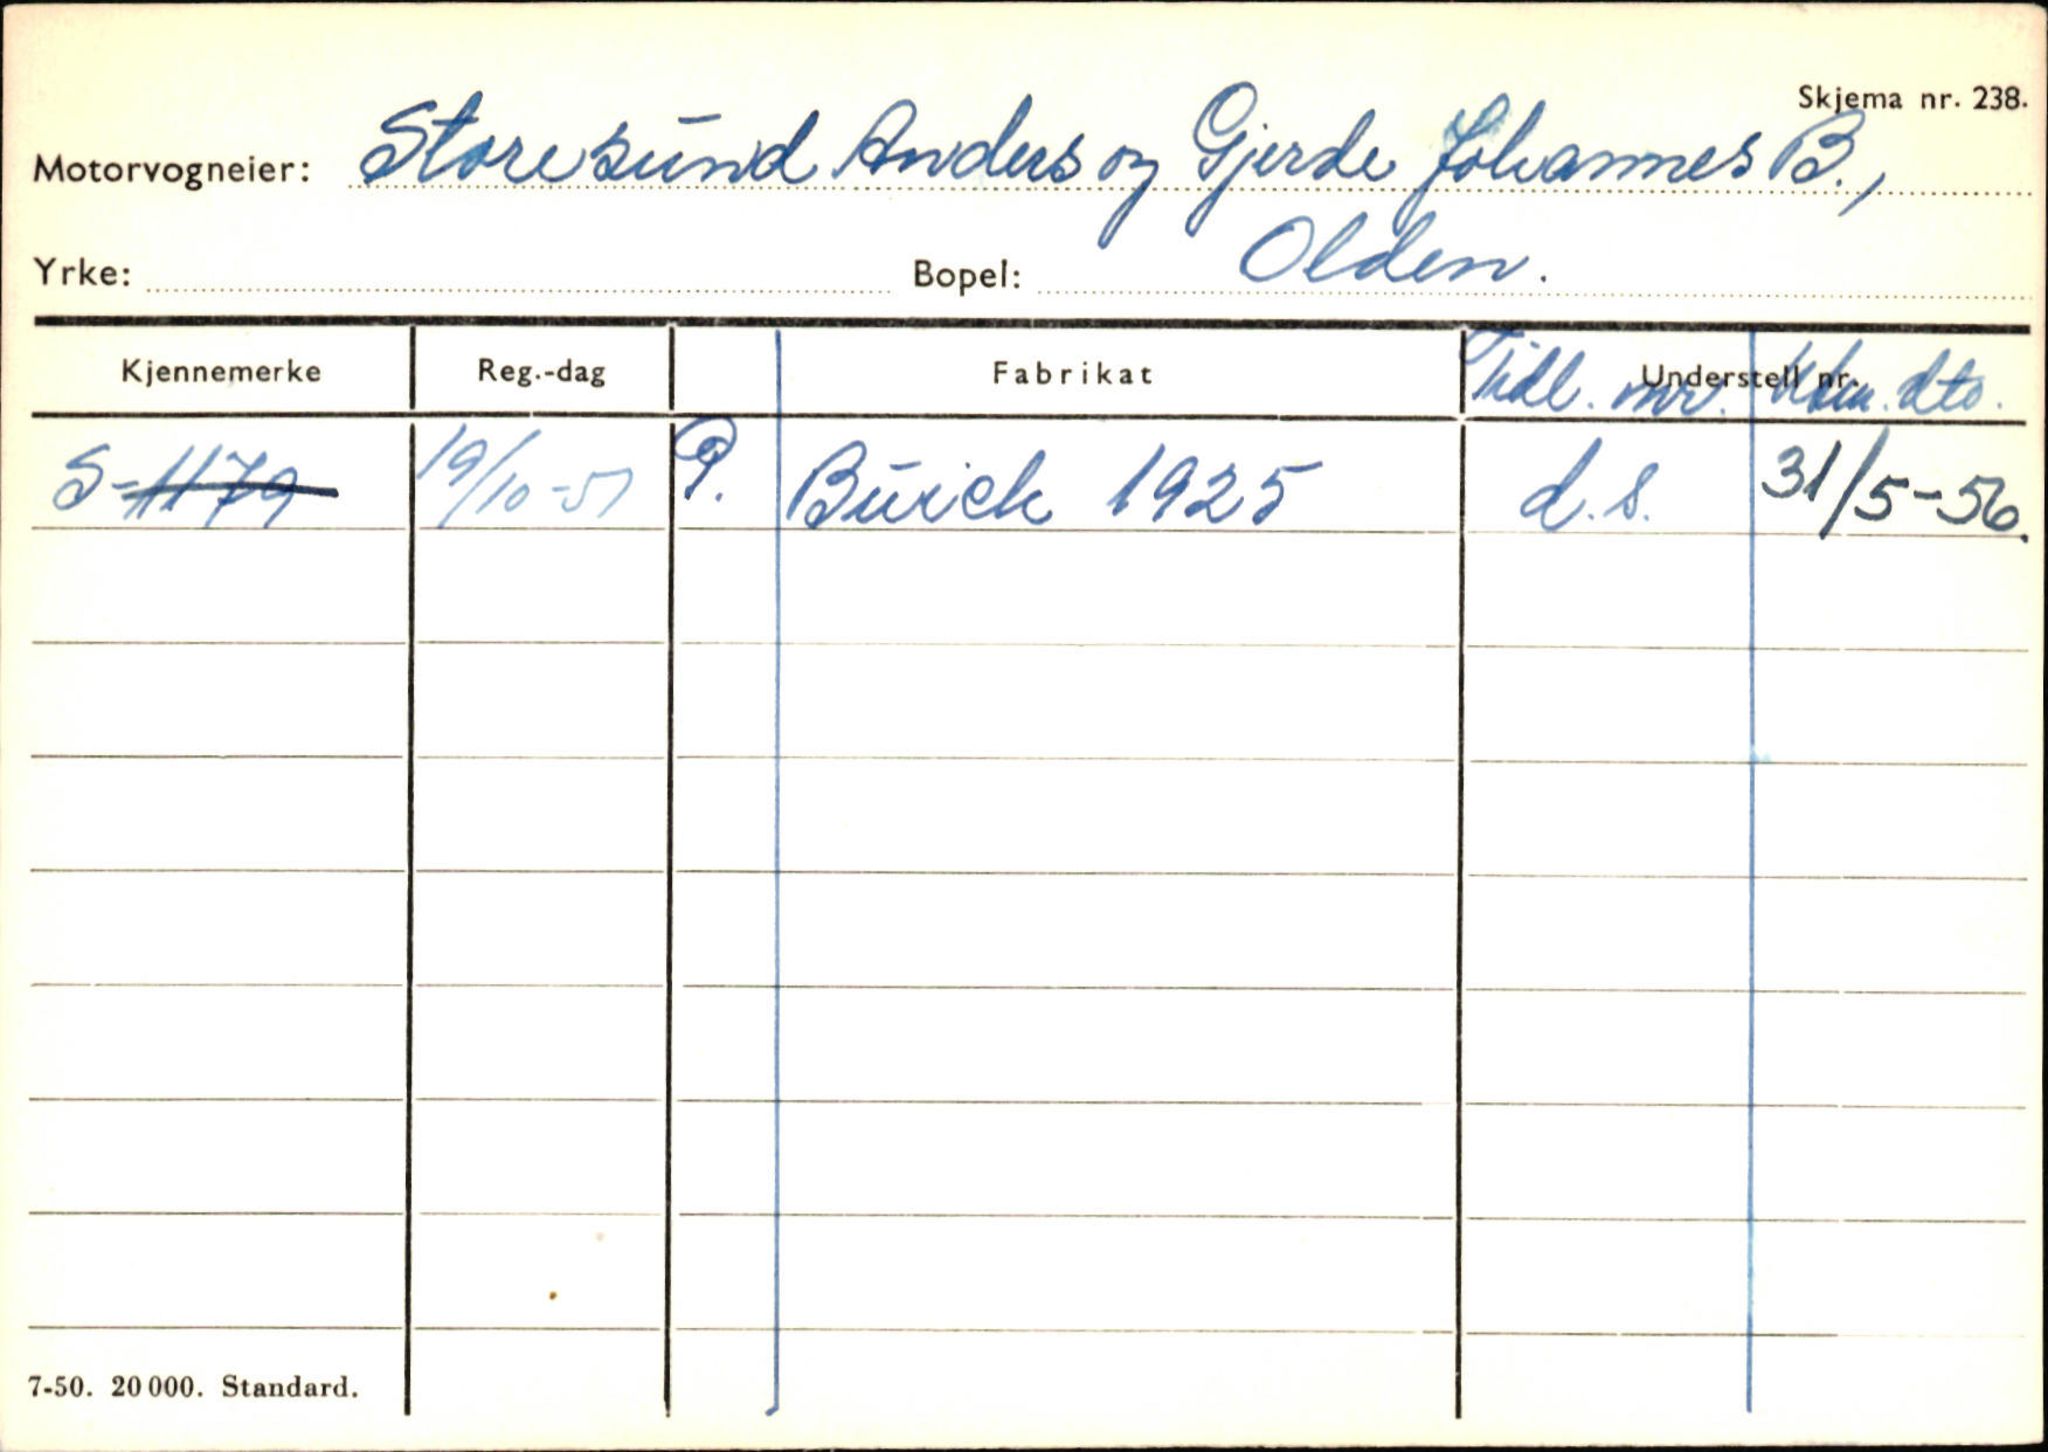 Skjema nr. 238.
Motorvogneier: Storesund Anders og Gjerde Johannes B.,
Yrke: Bopel: Olden.
Kjennemerke Reg.-dag Fabrikat Understell nr.
Tidl. mr. dto.
S-1179 19/10-51 P. Buick 1925 d.s. 31/5-56.
7-50. 20 000. Standard.